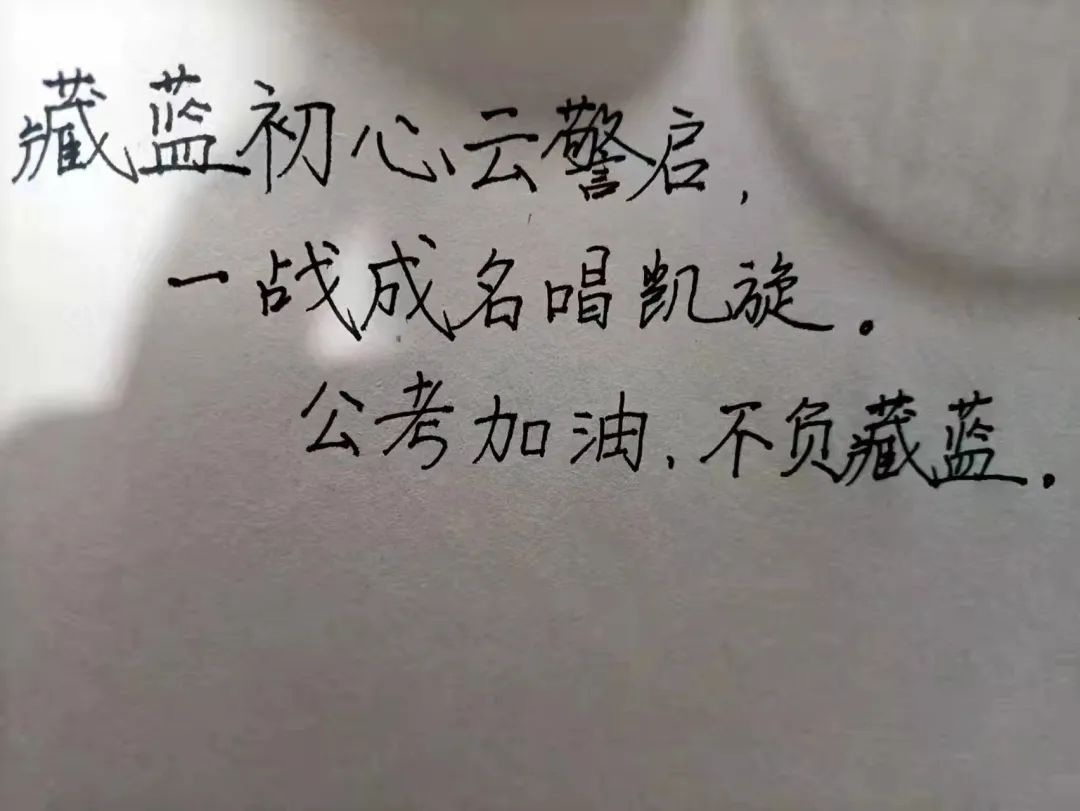 藏蓝初心云警启,
一战成名唱凯旋。
公考加油、不负藏蓝。